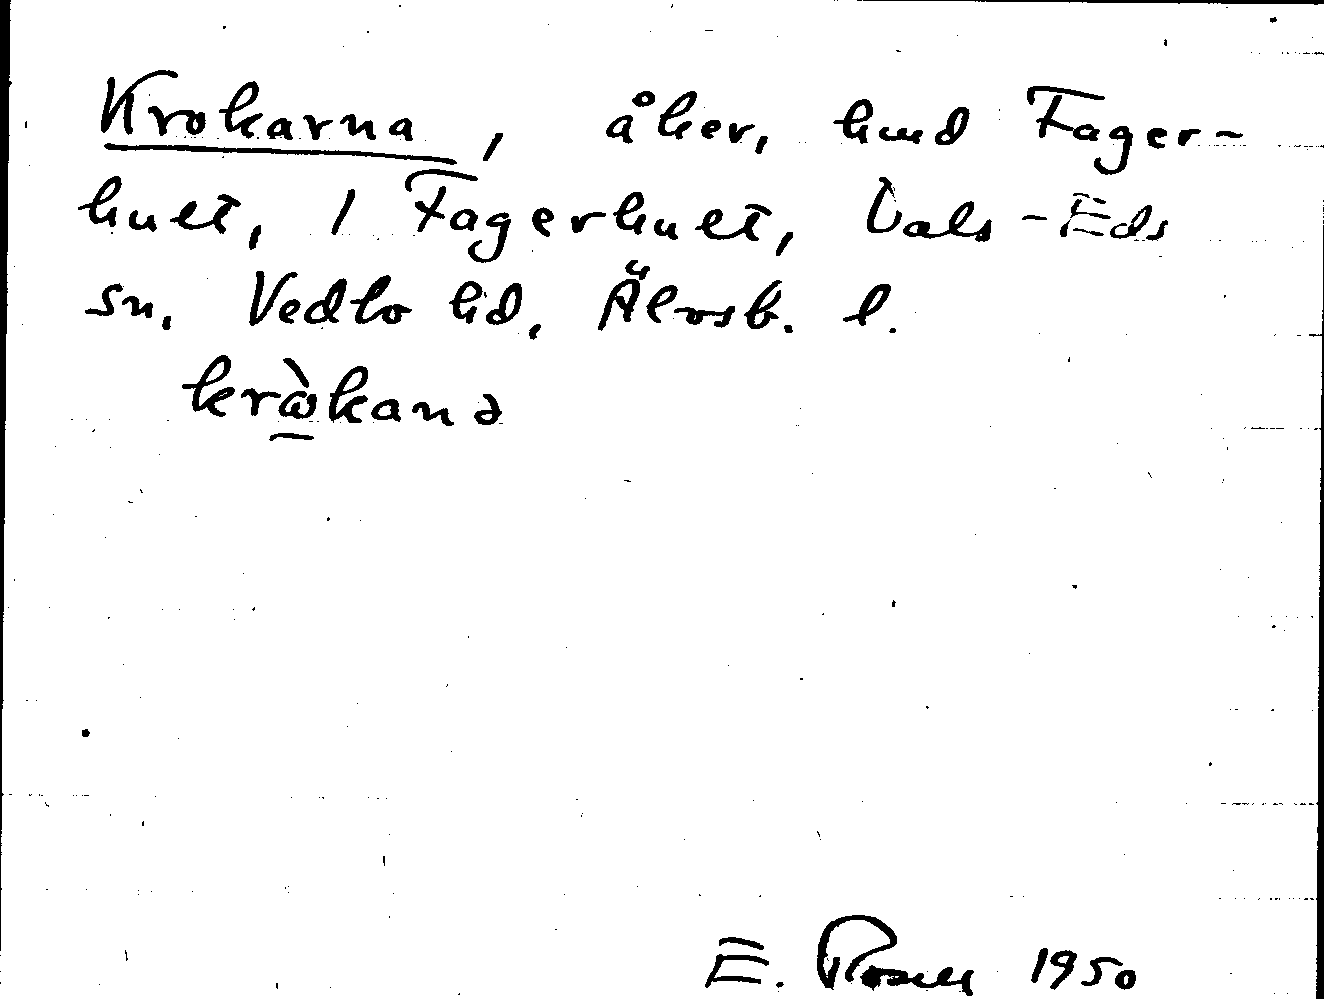 Krokarna, åker, hmd Fager-
hult, 1 Fagerhult, Dals-Eds
sn. Vedbo hd, Älvsb. l.
krὼ̠kanə
E. Rosell 1950